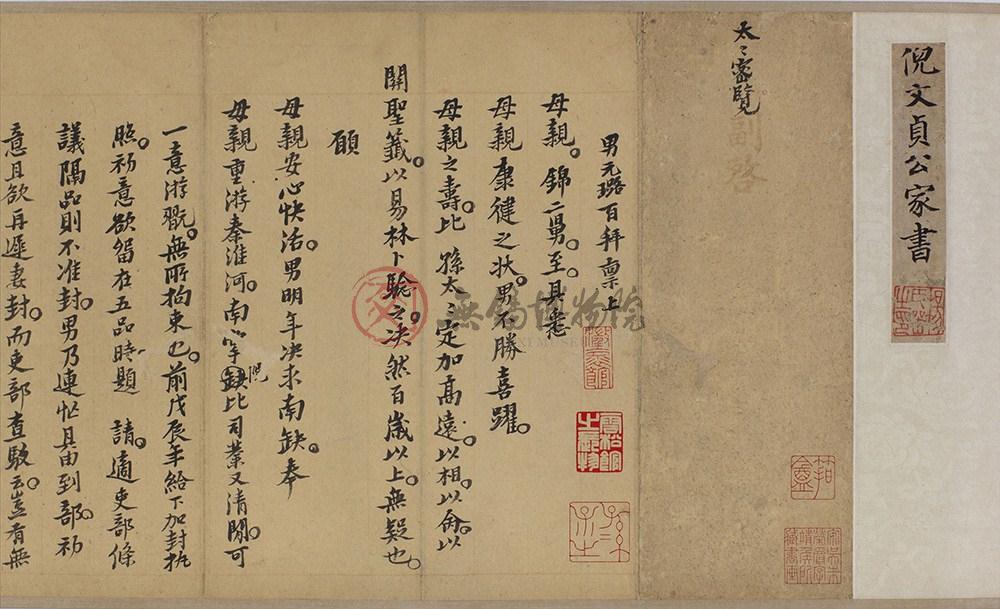 倪文貞公家書
太〻密覽
副啓
男元璐百拜稟上
母親。錦二舅。至。具悉
母親康健之狀。男不勝喜躍。
母親之壽。比 孫太 定加高遠。以相。以命。以
關聖籤。以易林卜驗之。决然百歲以上。無疑也。
願
母親安心快活。男明年决求南缺。奉
母親重游秦淮河。南掌缺比司業又清閒。可
一意游翫。無所拘束也。前戊辰年給下加封執
照。初意欲留在五品時題 請。適吏部條
議隔品則不准封。男乃連忙具由到部。初
意且欲再遲妻封。而吏部查駁云。豈有無
無錫博物院